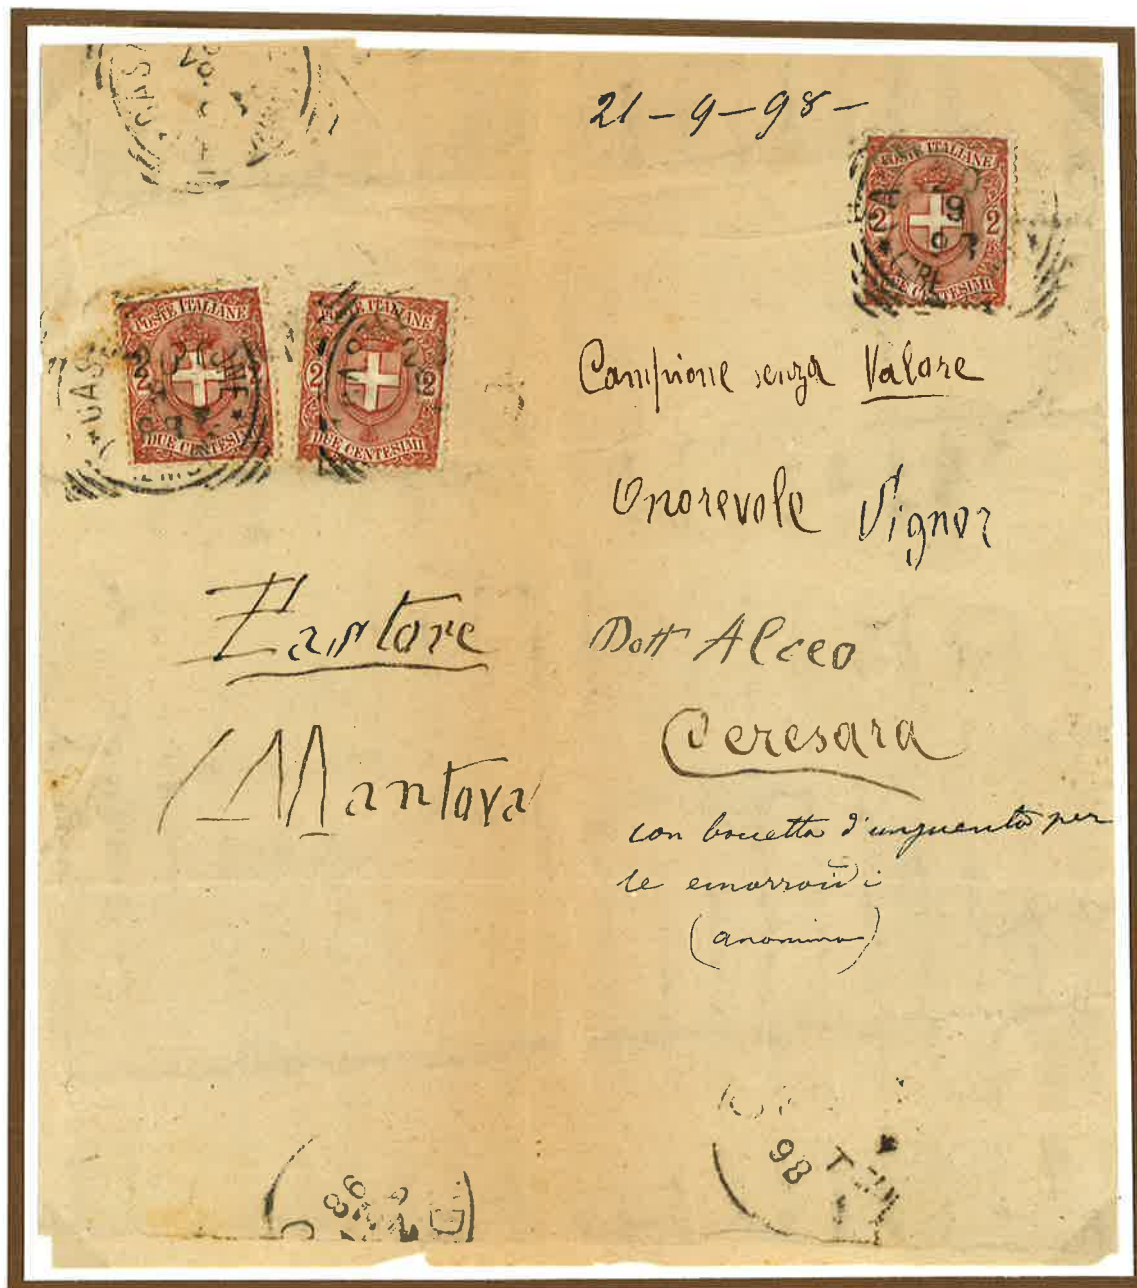 21-9-98-
POSTE ITALIANE
2 2
DUE CENTESIMI
POSTE ITALIANE
2
DUE CENTESIMI
POSTE ITALIANE
2 2
DUE CENTESIMI
Campione senza Valore
Onorevole Signor
Dott Alceo
Pastore
Ceresara
Mantova
con boccetta d'unguento per
le emorroidi
(anonimo)
98
98